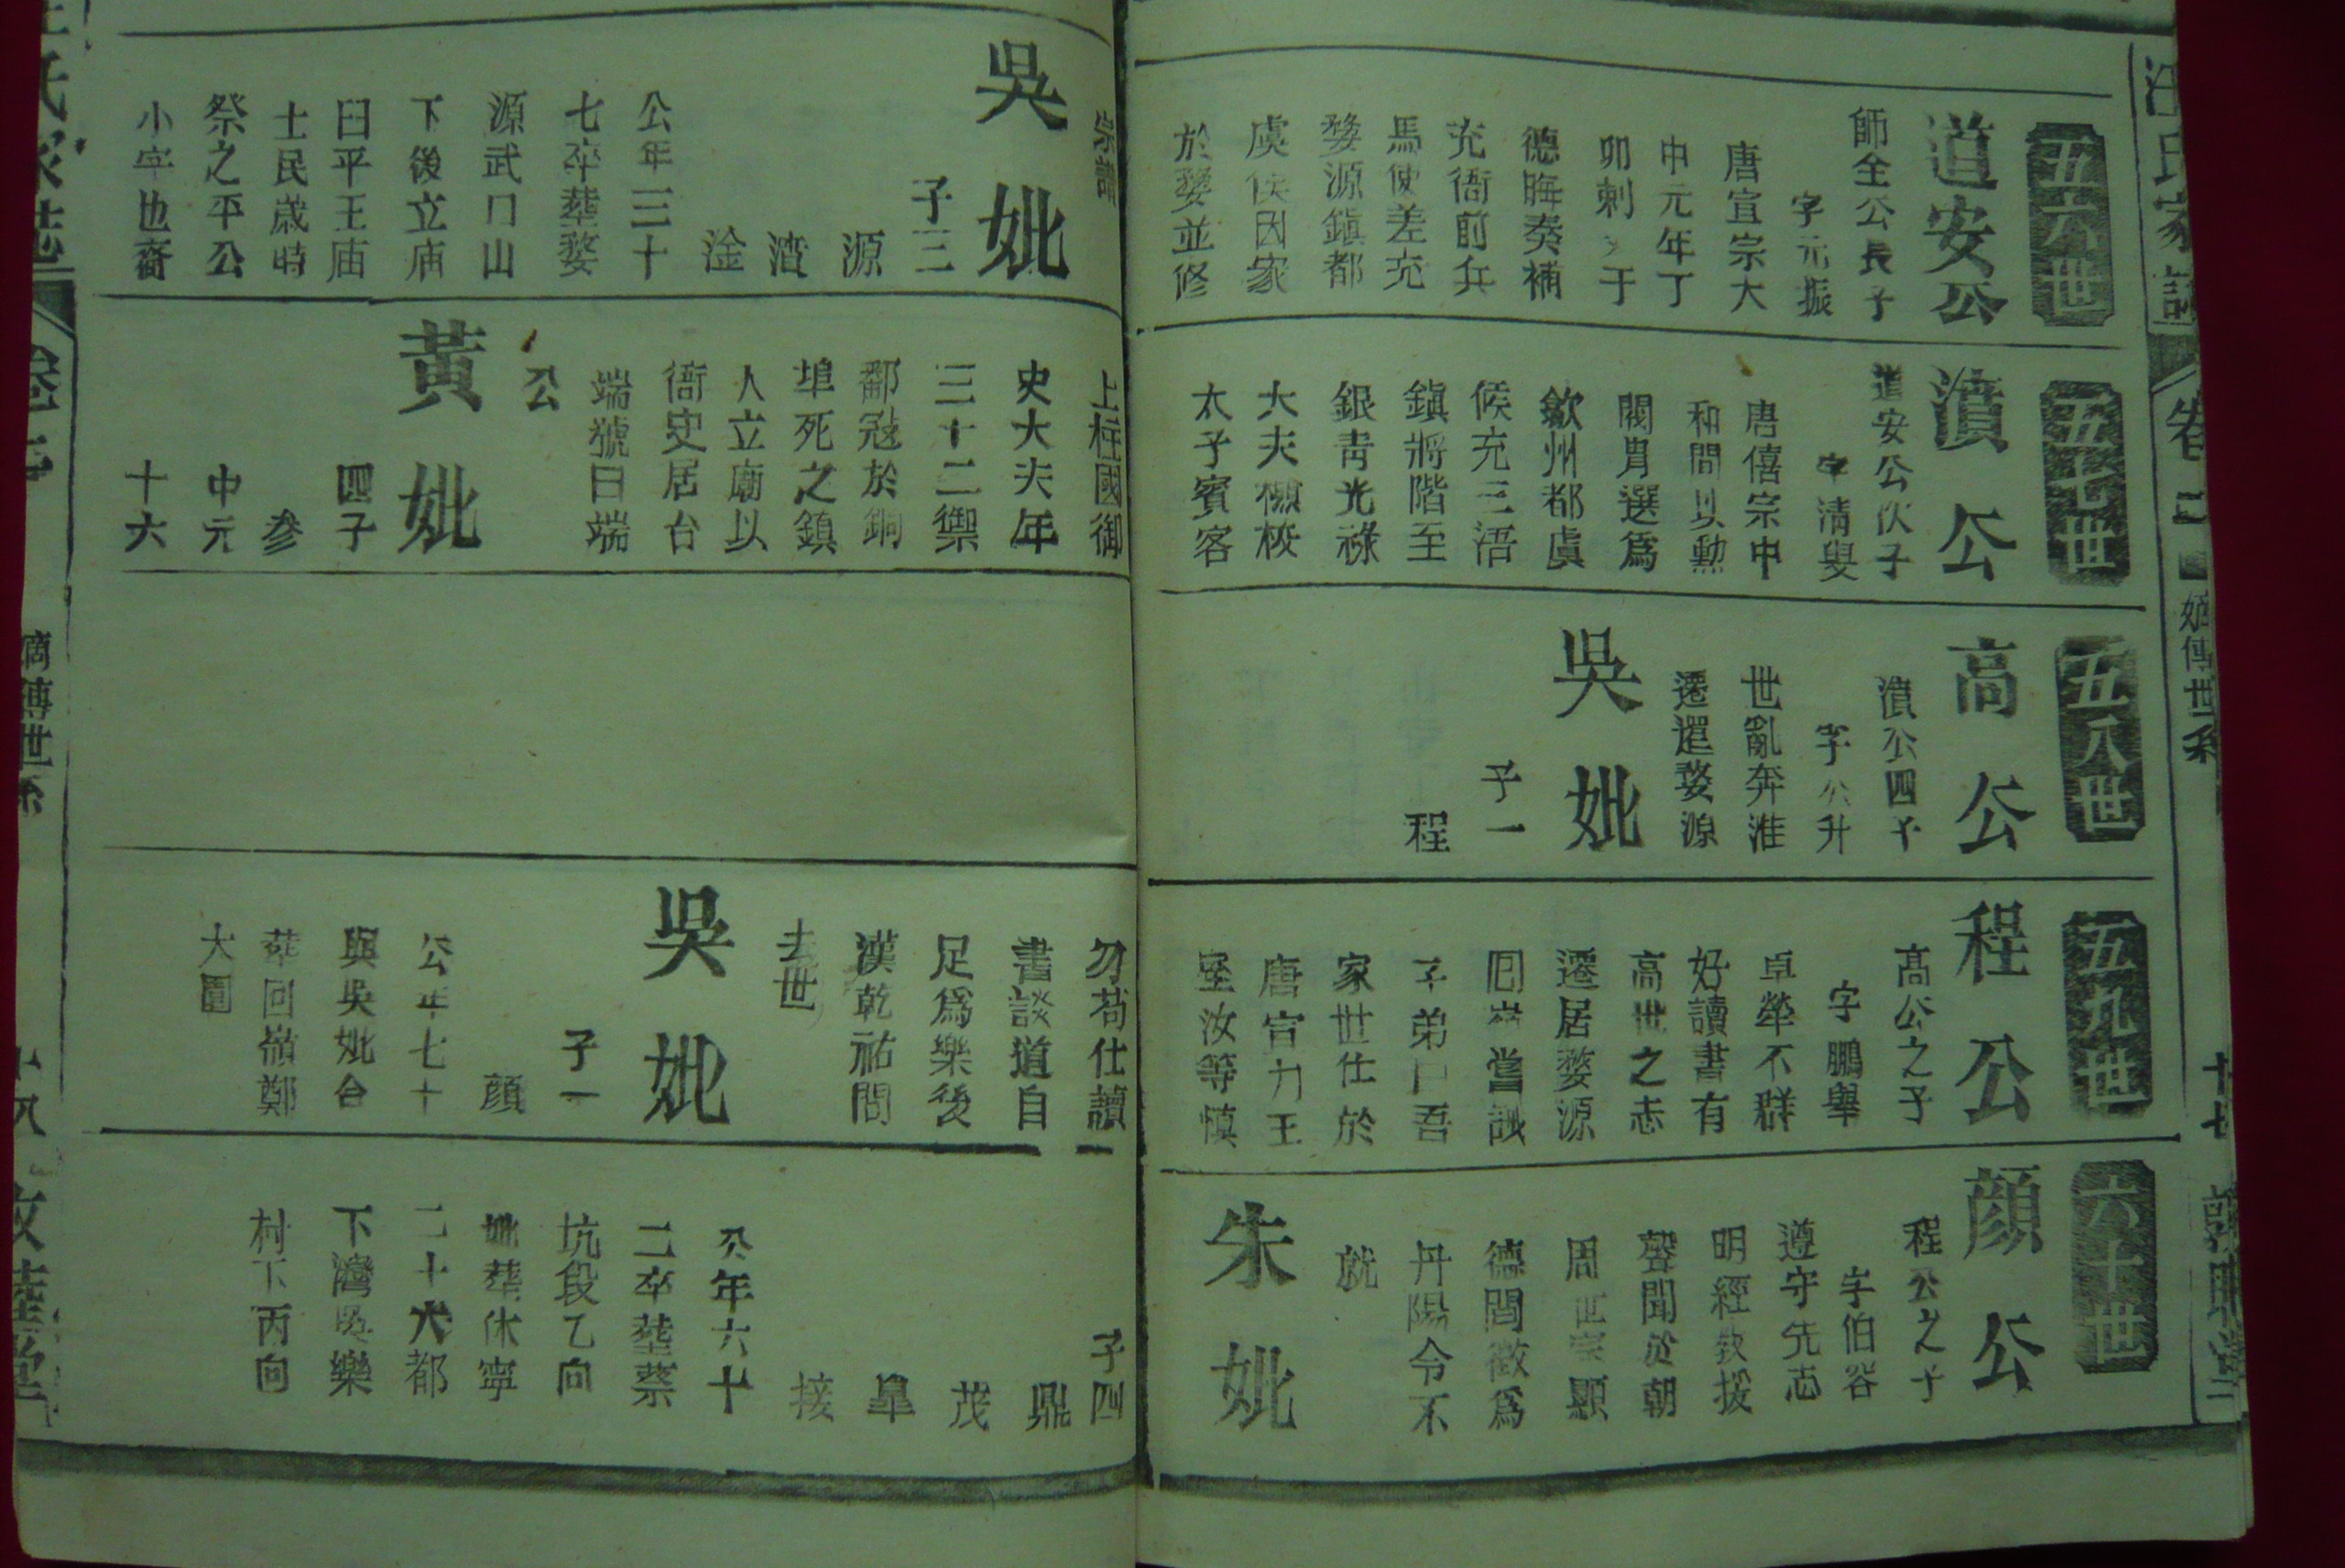 汪氏家譜
卷二
嫡傳世系
十七
五六世
道安公
師全公長子
字元振
唐宣宗大
中元年丁
卯刺 于
德晦奏補
充衙前兵
馬使差充
婺源鎮都
虞侯因家
於婺並修
宗譜
吳妣
子三
源
濆
淦
公年三十
七卒塟婺
源武口山
下後立庙
曰平王庙
士民歲時
祭之平公
小字也裔
五七世
濆公
道安公次子
字清叟
唐僖宗中
和間以勲
閥胄選爲
歙州都虞
候充三浯
鎮將階至
銀青光祿
大夫檢校
太子賓客
上柱國御
史大夫年
三十二禦
鄱冦於銅
埠死之鎮
人立廟以
衙史居台
端號曰端
公
黃妣
四子
參
中元
十六
五八世
高公
濆公四子
字公升
世亂奔淮
遷還婺源
吳妣
子一
程
五九世
程公
高公之子
字鵬舉
卓犖不群
好讀書有
高世之志
遷居婺源
回嶺嘗誡
子弟曰吾
家世仕於
唐宣力王
室汝等慎
勿苟仕讀
書談道自
足爲樂後
漢乾祐間
去世
吳妣
子一
顔
公年七十
與吳妣合
葬回嶺鄭
大園
六十世
顔公
程公之子
字伯容
遵守先志
明經教授
聲聞於朝
周世宗顯
德間徵爲
丹陽令不
就
朱妣
子四
鼎
茂
臯
接
公年六十
二卒塟蔡
坑段乙向
妣葬休寧
二十六都
下灣吳樂
村下丙向
卷二
嫡傳世系
十八